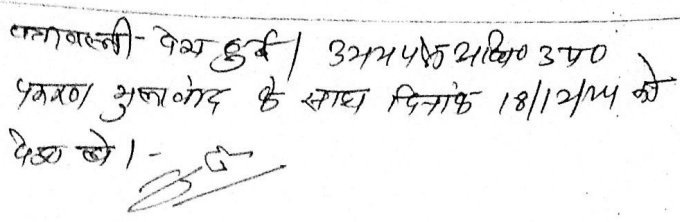 पत्रावली - पेश हुई। उभय पक्ष अधि० उप०
प्रकरण मुकदमा के साथ दिनांक 18/12/24 को
पेश हो। -